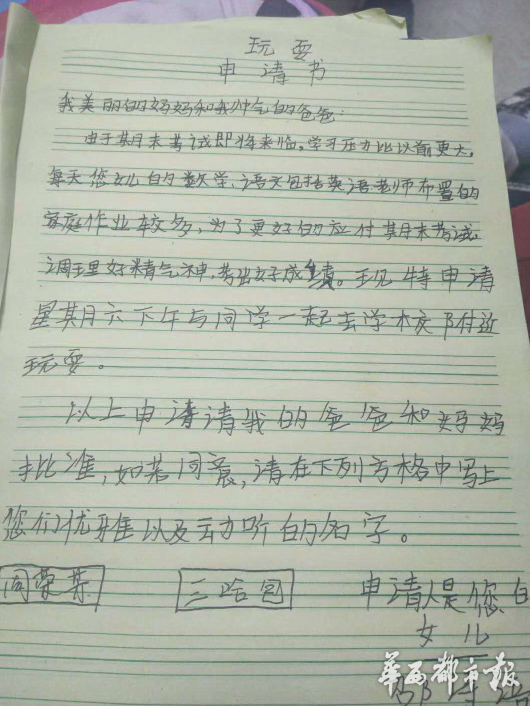 玩耍
申请书
我美丽的妈妈和我帅气的爸爸：
由于期末考试即将来临，学习压力比以前更大，
每天您女儿的数学、语文包括英语老师布置的
家庭作业较多，为了更好的应付期末考试，
调理好精气神，考出好成绩。现特申请
星期六下午与同学一起去学校附近
玩耍。
以上申请请我的爸爸和妈妈
批准，如若同意，请在下列方格中写上
您们优雅以及动听的名字。
申请人是您的
女儿
华西都市报